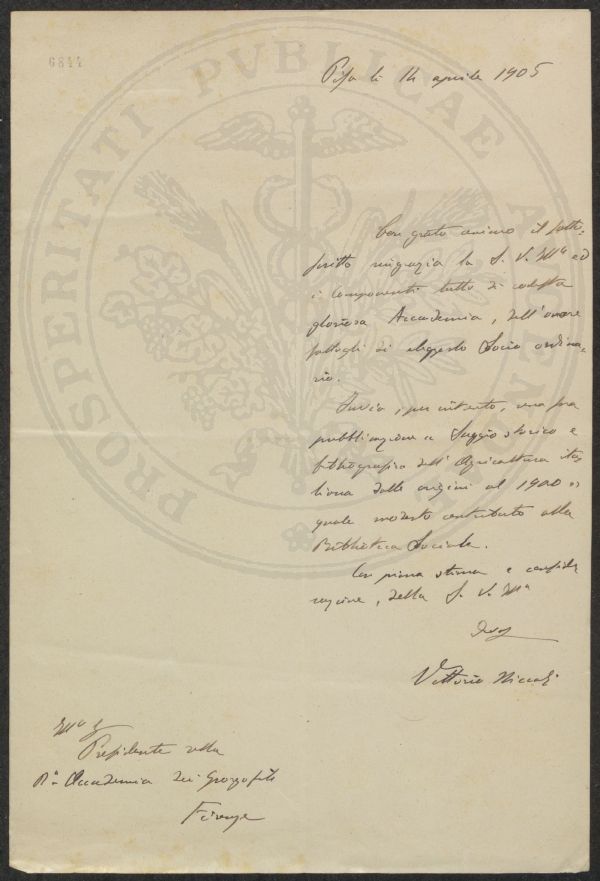 6844
PROSPERITATI PUBLICAE AUGENDAE
Pisa lì 14 aprile 1905
Con grato animo il sotto-
scritto ringrazia la S. V. Ill.ª ed
i componenti tutto di codesta
gloriosa Accademia, dell'onore
fattogli di eleggerlo Socio ordina-
rio.
Invia, per intanto, una sua
pubblicazione Saggio storico e
bibliografia dell'Agricoltura ita-
liana dalle origini al 1900
quale modesto contributo alla
Biblioteca Sociale.
Con piena stima e conside
razione, della S. V. Ill.ª
Devᵒ
Vittorio Niccoli
Ill.º S.
Presidente della
R.ª Accademia dei Georgofili
Firenze